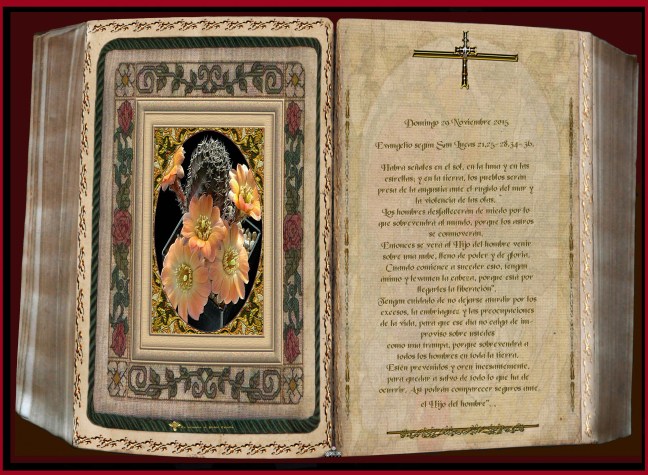 Domingo 29 Noviembre 2015
Evangelio según San Lucas 21,25-28.34-36.
Habrá señales en el sol, en la luna y en las
estrellas; y en la tierra, los pueblos serán
presa de la angustia ante el rugido del mar y
la violencia de las olas.
Los hombres desfallecerán de miedo por lo
que sobrevendrá al mundo, porque los astros
se conmoverán.
Entonces se verá al Hijo del hombre venir
sobre una nube, lleno de poder y de gloria.
Cuando comience a suceder esto, tengan
ánimo y levanten la cabeza, porque está por
llegarles la liberación".
Tengan cuidado de no dejarse aturdir por los
excesos, la embriaguez y las preocupaciones
de la vida, para que ese día no caiga de im-
proviso sobre ustedes
como una trampa, porque sobrevendrá a
todos los hombres en toda la tierra.
Estén prevenidos y oren incesantemente,
para quedar a salvo de todo lo que ha de
ocurrir. Así podrán comparecer seguros ante
el Hijo del hombre".